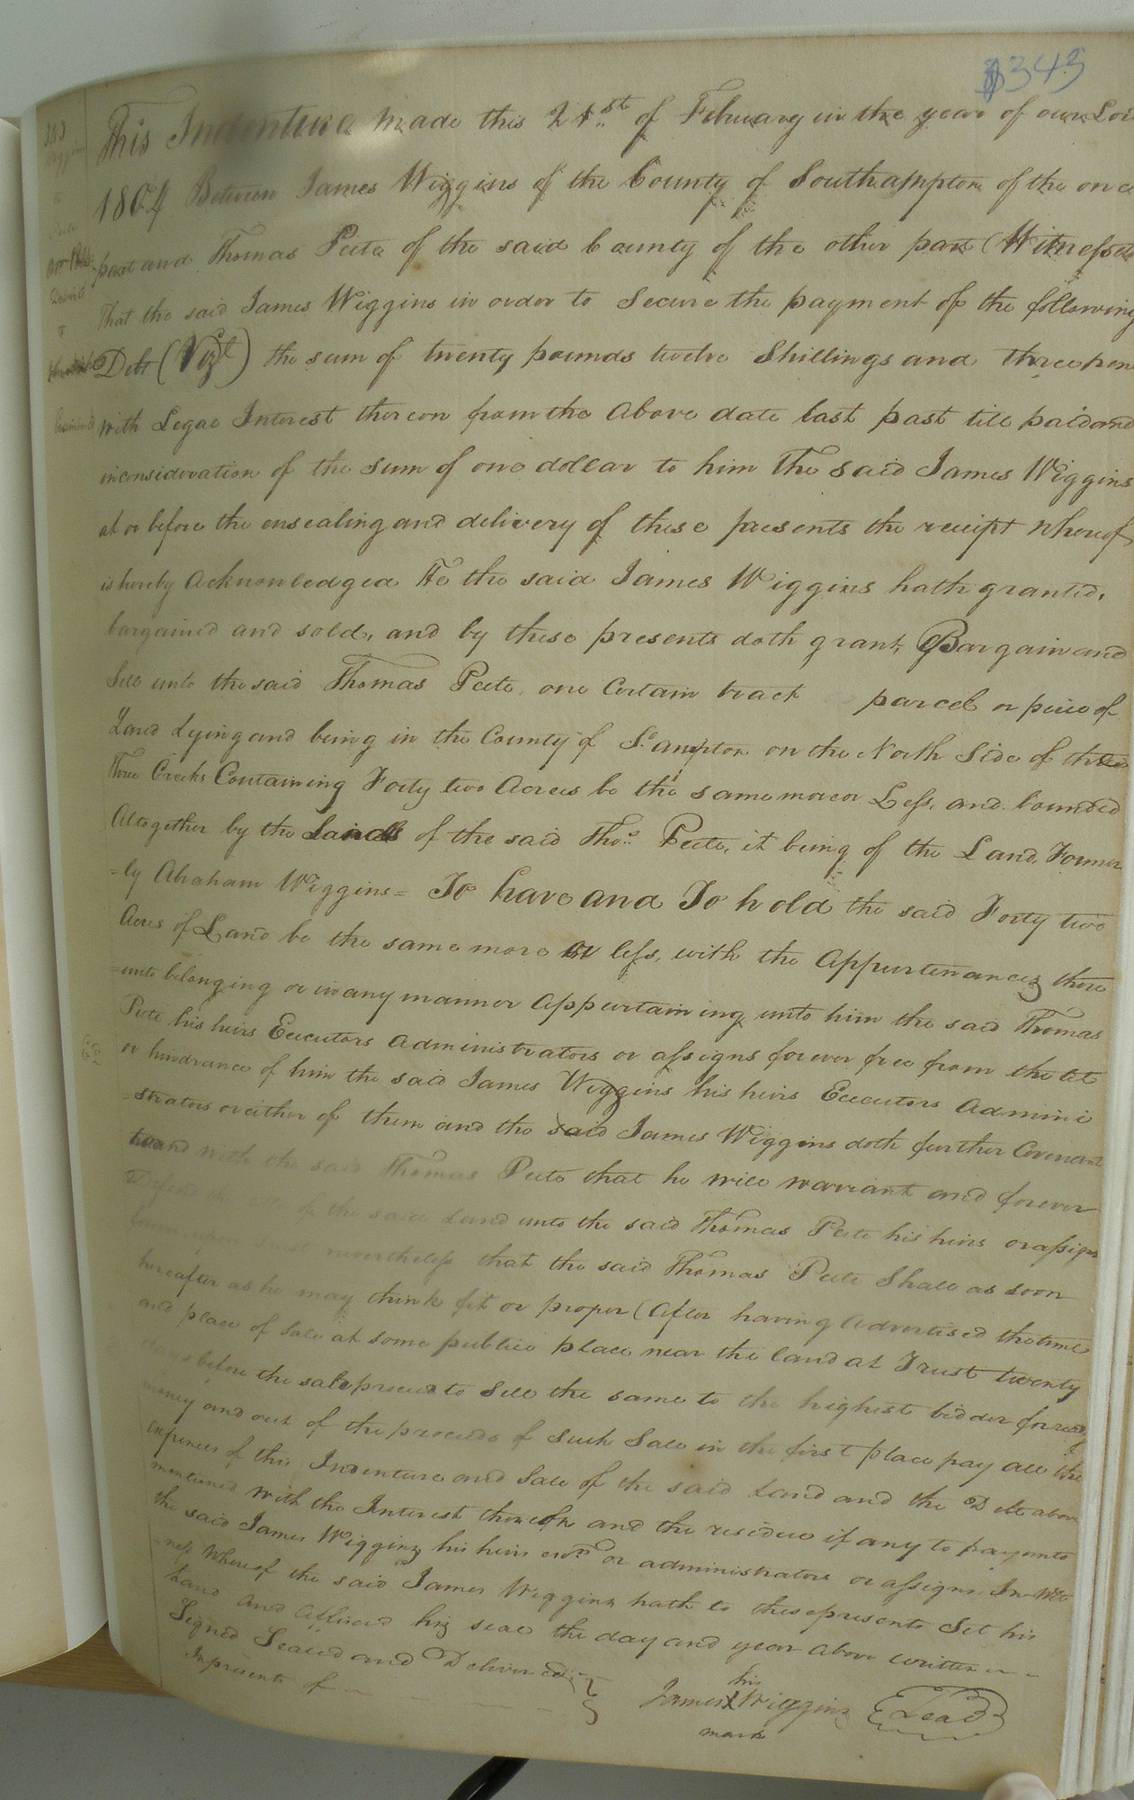 343
This Indenture made this 21st of February in the year of our Lor
1804 Between James Wiggins of the County of Southampton of the one
part and Thomas Peete of the said County of the other part (Witnesseth
That the said James Wiggins in order to Secure the payment of the following
Debt (Vizt) the sum of twenty pounds twelve Shillings and three pen
with Legal Interest thereon from the above date last past till paid and
inconsideration of the Sum of one dollar to him The said James Wiggins
at or before the ensealing and delivery of these presents the receipt whereof
is hereby Acknowledged He the said James Wiggins hath granted,
bargained and sold, and by these presents doth grant, Bargain and
Sell unto the said Thomas Peete, one Certain tract parcel or piece of
Land Lying and being in the County of S.ampton on the North Side of the
Three Creeks Containing Forty two Acres be the same more or Less, and bounded
Altogether by the Lands of the said Thos. Peete, it being of the Land, Former
=ly Abraham Wiggins = To have and To hold the said Forty two
Acres of Land be the same more or less, with the Appurtenances there
=unto belonging or in any manner Appurtaining unto him the said Thomas
Peete his heirs Executors Administrators or assigns forever free from the let
or hindrance of him the said James Wiggins his heirs Executors Admini
=strators or either of them and the said James Wiggins doth further Covenant
and with the said Thomas Peete that he will warrant and forever
Defend the of the said Land unto the said Thomas Peete his heirs or assigns
upon nevertheless that the said Thomas Peete Shall as soon
hereafter as he may think fit or proper (After having Advertised the time
and place of Sale at some public place near the land at Trust twenty
days before the sale proceed to Sell the same to the highest bidder for ready
money and out of the proceeds of Such Sale in the first place pay all the
expences of this Indenture and Sale of the said Land and the Debt above
mentioned With the Interest thereon and the residue if any to pay unto
the said James Wiggins his heirs exors or administrators or assigns. In Wit
=ness Whereof the said James Wiggins hath to these presents Set his
hand and Affixed his seal the day and year above written
Signed Sealed and Delivered
In presents of
his
James X Wiggins Seal
mark